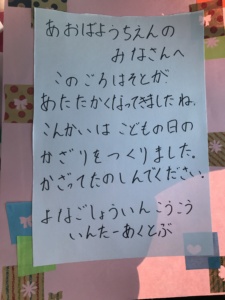 あおばようちえんの
みなさんへ
このごろはそとが
あたたかくなってきましたね。
こんかいは こどもの日の
かざりをつくりました。
かざってたのしんでください。
よなごしょういんこうこう
いんたーあくとぶ